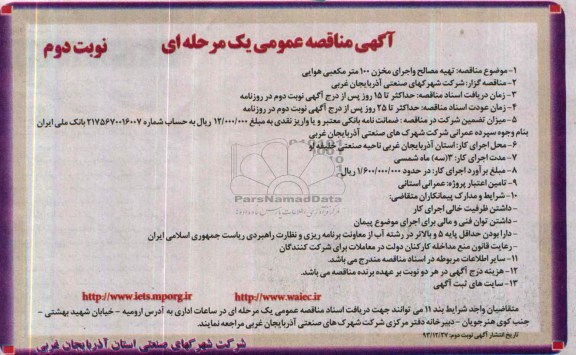 آگهی مناقصه عمومی یک مرحله ای
نوبت دوم
۱- موضوع مناقصه: تهیه مصالح واجرای مخزن ۱۰۰ متر مکعبی هوایی
۲- مناقصه گزار: شرکت شهرکهای صنعتی آذربایجان غربی
۳- زمان دریافت اسناد مناقصه: حداکثر تا ۱۵ روز پس از درج آگهی نوبت دوم در روزنامه
۴- زمان عودت اسناد مناقصه: حداکثر تا ۲۵ روز پس از درج آگهی نوبت دوم در روزنامه
۵- میزان تضمین شرکت در مناقصه: ضمانت نامه بانکی معتبر و یا واریز نقدی به مبلغ ۱۲/۰۰۰/۰۰۰ ریال به حساب شماره ۲۱۷۵۶۷۰۰۱۶۰۰۷ بانک ملی ایران
بنام وجوه سپرده عمرانی شرکت شهرک های صنعتی آذربایجان غربی
۶- محل اجرای کار: استان آذربایجان غربی ناحیه صنعتی خلیفه لو
۷- مدت اجرای کار: ۳(سه) ماه شمسی
۸- مبلغ برآورد اجرای کار: در حدود ۱/۶۰۰/۰۰۰/۰۰۰ ریال
۹- تامین اعتبار پروژه: عمرانی استانی
۱۰- شرایط و مدارک پیمانکاران متقاضی:
- داشتن ظرفیت خالی اجرای کار
- داشتن توان فنی و مالی برای اجرای موضوع پیمان
- دارا بودن حداقل پایه ۵ و بالاتر در رشته آب از معاونت برنامه ریزی و نظارت راهبردی ریاست جمهوری اسلامی ایران
- رعایت قانون منع مداخله کارکنان دولت در معاملات برای شرکت کنندگان
۱۱- سایر اطلاعات مربوطه در اسناد مناقصه مندرج می باشد.
۱۲- هزینه درج آگهی در هر دو نوبت بر عهده برنده مناقصه می باشد.
۱۳- سایت های ثبت آگهی
http://www.iets.mporg.ir http://www.waiec.ir
متقاضیان واجد شرایط بند ۱۱ می توانند جهت دریافت اسناد مناقصه عمومی یک مرحله ای در ساعات اداری به آدرس ارومیه - خیابان شهید بهشتی -
جنب کوی هنرجویان - دبیرخانه دفتر مرکزی شرکت شهرک های صنعتی آذربایجان غربی مراجعه نمایند.
تاریخ انتشار آگهی نوبت دوم: ۹۳/۱۲/۲۷
شرکت شهرکهای صنعتی استان آذربایجان غربی
ParsNamadData